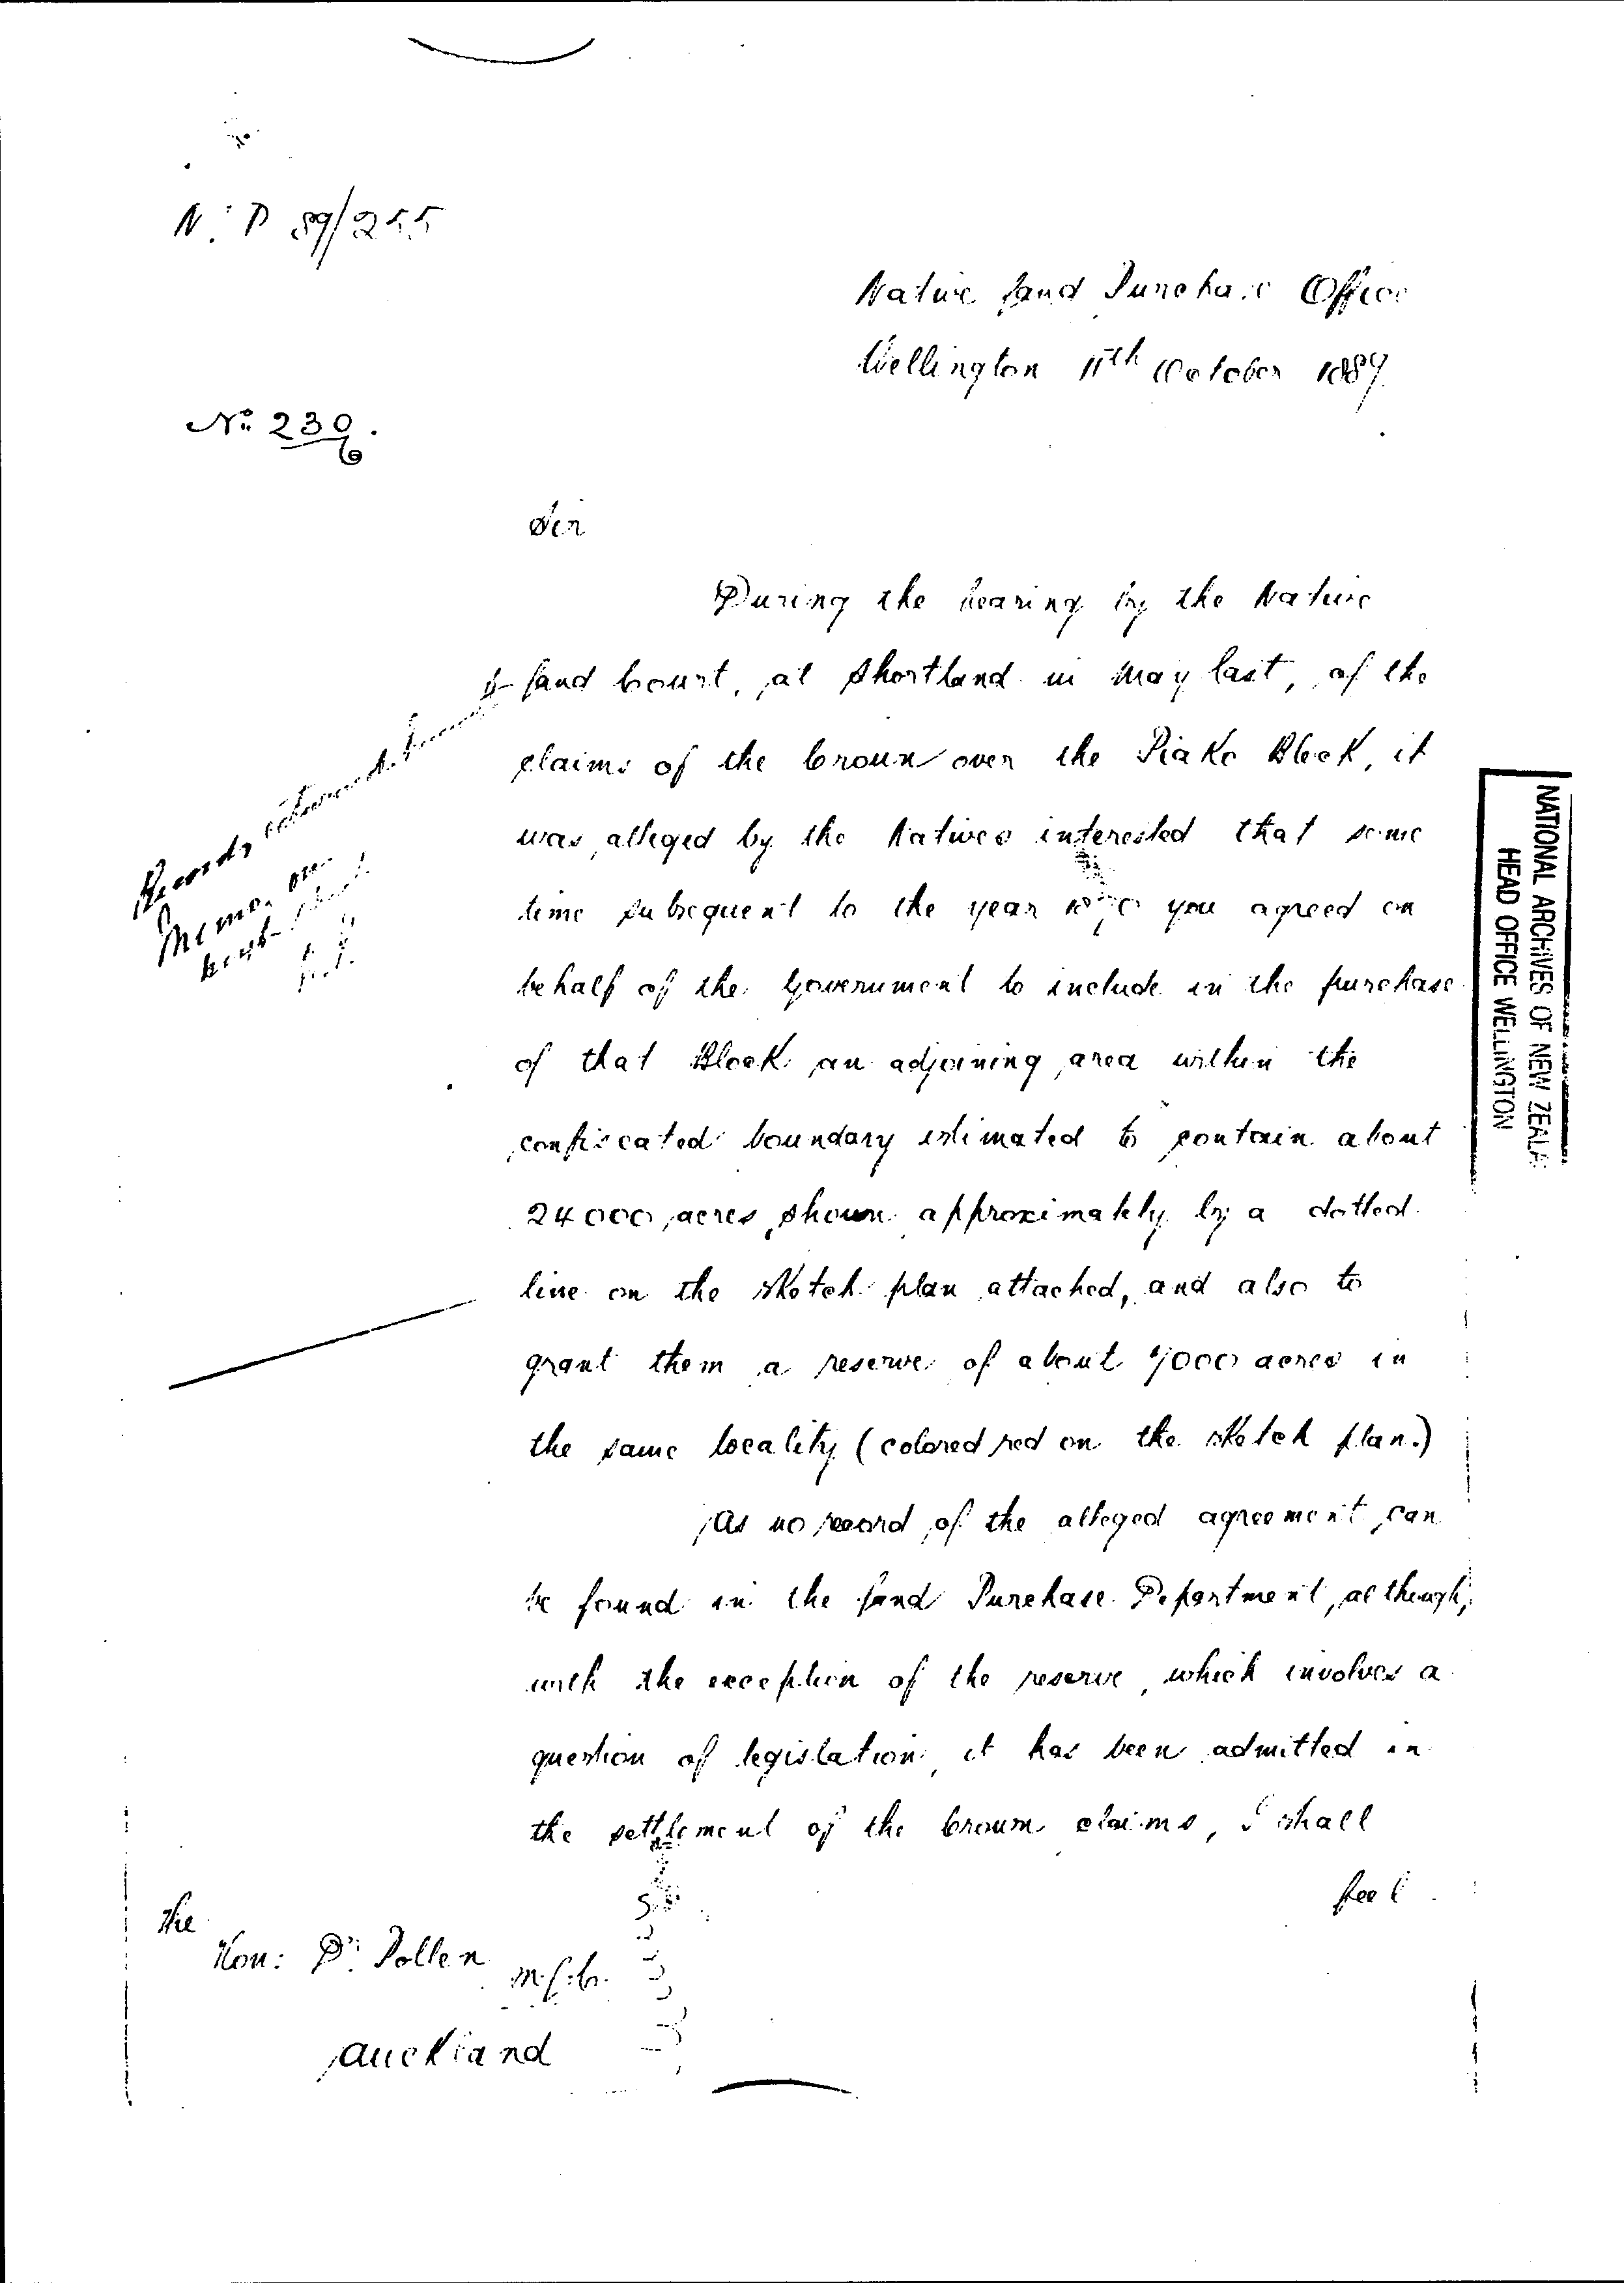 N.P 89/255
Native Land Purchase Office
Wellington 11th October 1889.
No. 230.
Sir
During the hearing by the Native
Land Court, at Shortland in May last, of the
claims of the Crown over the Piako Block, it
was alleged by the Natives interested that some
time subsequent to the year you agreed on
behalf of the Government to include in the purchase
of that Block an adjoining area within the
confiscated boundary estimated to contain about
24000 acres, shown approximately by a dotted
line on the sketch plan attached, and also to
grant them a reserve of about 7000 acres in
the same locality (colored red on the sketch plan.)
As no record of the alleged agreement can
be found in the Land Purchase Department, although,
with the exception of the reserve, which involves a
question of legislation, it has been admitted in
the settlement of the Crown claims, I shall
feel
The
Hon: Dr. Pollen M.L.C.
Auckland
Records
Memo. on
NATIONAL ARCHIVES OF NEW ZEALA
HEAD OFFICE WELLINGTON